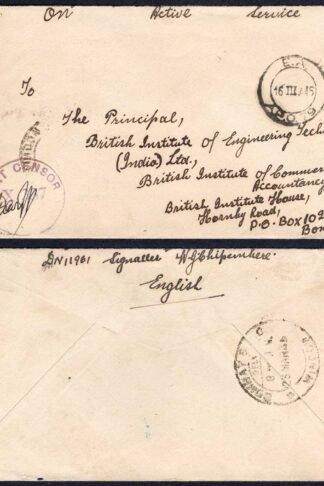 On Active Service
E.A.
16 III 45
A.P.O. 79
To
The Principal,
British Institute of Engineering Techn
(India) Ltd.,
British Institute of Commer
Accountanc
British Institute House,
Hornby Road,
P.O. BOX 102
Bom
CENSOR
DN11961 Signaller
English